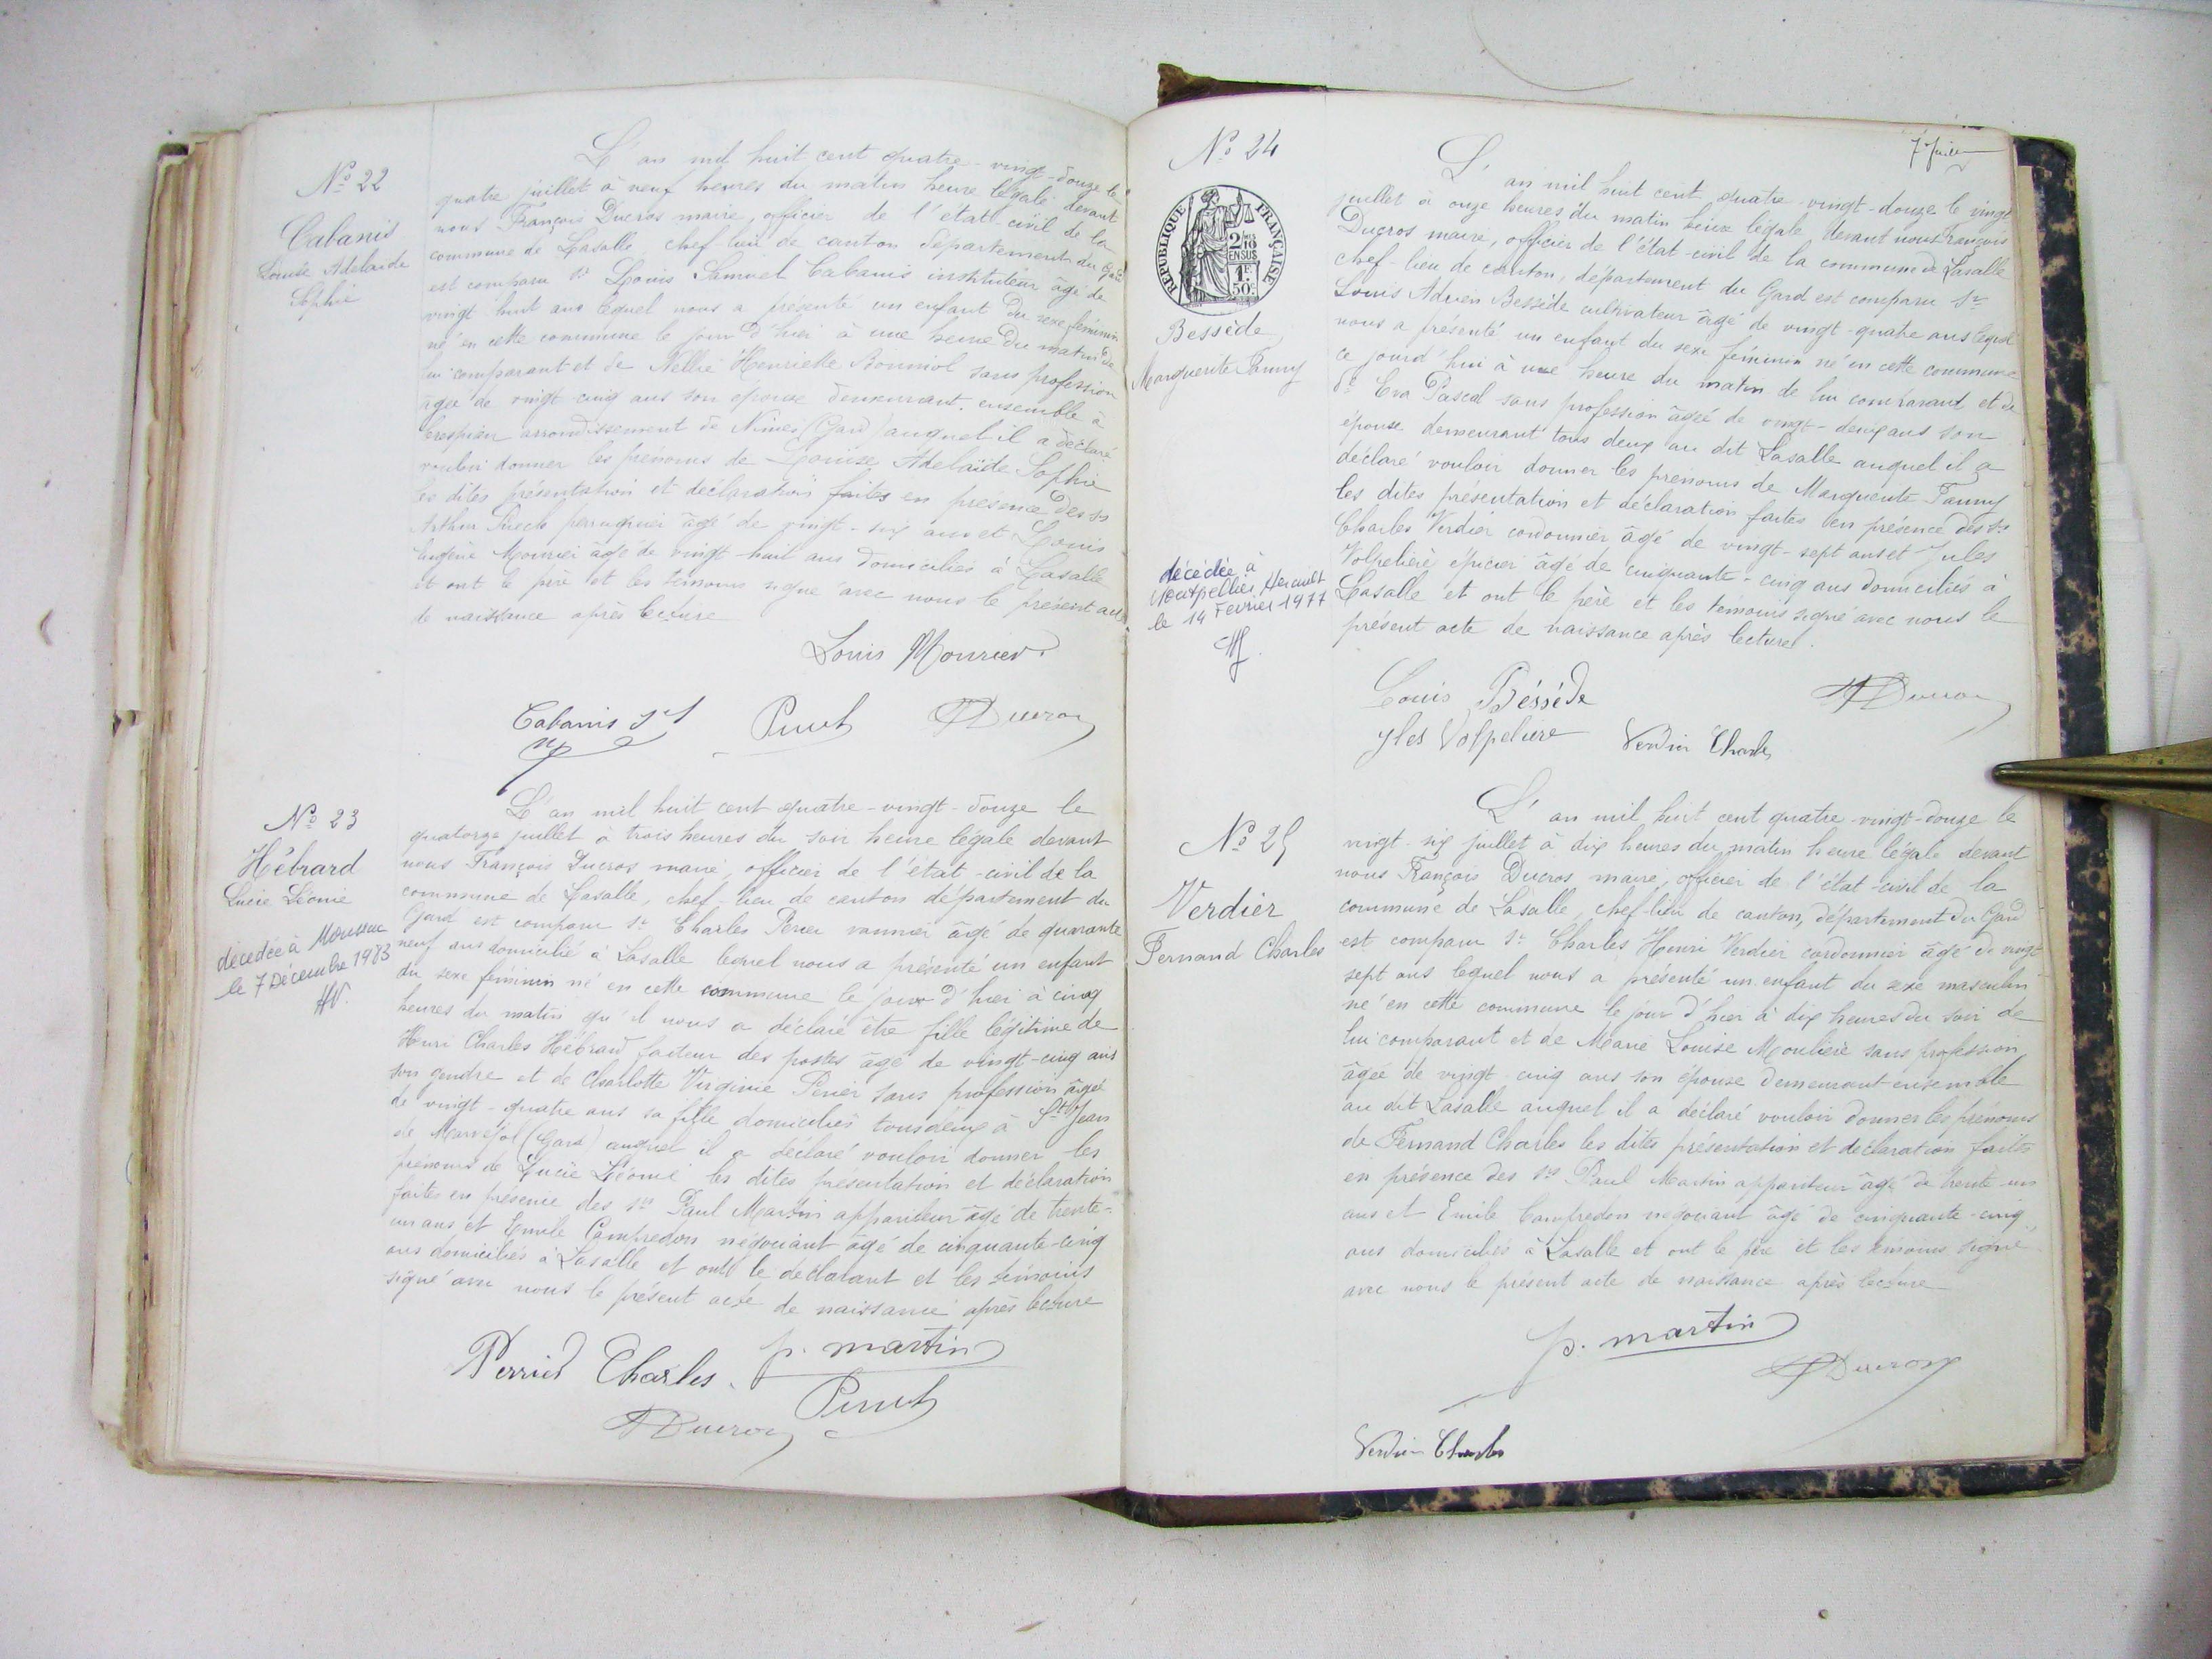 Nº 22
Cabanis
Louise Adelaïde
Sophie
L'an mil huit cent quatre-vingt-douze le
quatre juillet à neuf heures du matin heure légale devant
nous François Ducros maire, officier de l'état-civil de la
commune de Lasalle, chef-lieu de canton département du Gard
est comparu Sr Louis Samuel Cabanis instituteur âgé de
vingt huit ans lequel nous a présenté un enfant du sexe féminin
né en cette commune le jour d'hier à une heure du matin de
lui comparant et de Nellie Henriette Bonniol sans profession
âgée de vingt cinq ans son épouse demeurant ensemble à
Crespian arrondissement de Nîmes (Gard) auquel il a déclaré
vouloir donner les prénoms de Louise Adelaïde Sophie
les dites présentation et déclaration faites en présence des srs
Arthur Puech perruquier âgé de vingt-six ans et Louis
Eugène Mourier âgé de vingt-huit ans domiciliés à Lasalle
et ont le père et les témoins signé avec nous le présent acte
de naissance après lecture
Louis Mourier
Cabanis Puech Ducros
Nº 23
Hébrard
Lucie Léonie
décedée à
le 7 Décembre 1983
HV.
L'an mil huit cent quatre-vingt-douze le
quatorze juillet à trois heures du soir heure légale devant
nous François Ducros maire, officier de l'état-civil de la
commune de Lasalle, chef-lieu de canton département du
Gard est comparu Sr Charles Perier vannier âgé de quarante
neuf ans domicilié à Lasalle lequel nous a présenté un enfant
du sexe féminin né en cette commune le jour d'hier à cinq
heures du matin qu'il nous a déclaré être fille légitime de
Henri Charles Hébrard facteur des postes âgé de vingt-cinq ans
son gendre et de Charlotte Virginie Perier sans profession âgée
de vingt-quatre ans sa fille domiciliés tous deux à St Jean
de Marvéjol (Gard) auquel il a déclaré vouloir donner les
prénoms de Lucie Léonie les dites présentation et déclaration
faites en présence des srs Paul Martin appariteur âgé de trente-
un ans et Emile Campredon négociant âgé de cinquante-cinq
ans domiciliés à Lasalle et ont le déclarant et les témoins
signé avec nous le présent acte de naissance après lecture
Perrier Charles. p. martin
Ducros Puech
7 Juillet
Nº 24
RÉPUBLIQUE FRANÇAISE
2/10 EN SUS
1F 50c
Bessède
Marguerite Fanny
décédée à
Montpellier Herault
le 14 Fevrier 1977
L'an mil huit cent quatre-vingt-douze le vingt
juillet à onze heures du matin heure légale devant nous François
Ducros maire, officier de l'état-civil de la commune de Lasalle
chef-lieu de canton, département du Gard est comparu Sr
Louis Adrien Bessède cultivateur âgé de vingt-quatre ans lequel
nous a présenté un enfant du sexe féminin né en cette commune
ce jourd'hui à une heure du matin de lui comparant et de
de Eva Pascal sans profession âgée de vingt-deux ans son
épouse demeurant tous deux au dit Lasalle auquel il a
déclaré vouloir donner les prénoms de Marguerite Fanny
les dites présentation et déclaration faites en présence des srs
Charles Verdier cordonnier âgé de vingt-sept ans et Jules
Volpelière épicier âgé de cinquante-cinq ans domiciliés à
Lasalle et ont le père et les témoins signé avec nous le
présent acte de naissance après lecture.
Louis Bésséde Ducros
Jles Volpelière Verdier Charles
Nº 25
Verdier
Fernand Charles
L'an mil huit cent quatre-vingt-douze le
vingt-six juillet à dix heures du matin heure légale devant
nous François Ducros maire, officier de l'état-civil de la
commune de Lasalle, chef-lieu de canton, département du Gard
est comparu Sr Charles Henri Verdier cordonnier âgé de vingt
sept ans lequel nous a présenté un enfant du sexe masculin
né en cette commune le jour d'hier à dix heures du soir de
lui comparant et de Marie Louise Moulière sans profession
âgée de vingt cinq ans son épouse demeurant ensemble
au dit Lasalle auquel il a déclaré vouloir donner les prénoms
de Fernand Charles les dites présentation et déclaration faites
en présence des srs Paul Martin appariteur âgé de trente-un
ans et Emile Campredon négociant âgé de cinquante-cinq
ans domiciliés à Lasalle et ont le père et les témoins signé
avec nous le présent acte de naissance après lecture
p. martin
Ducros
Verdier Charles